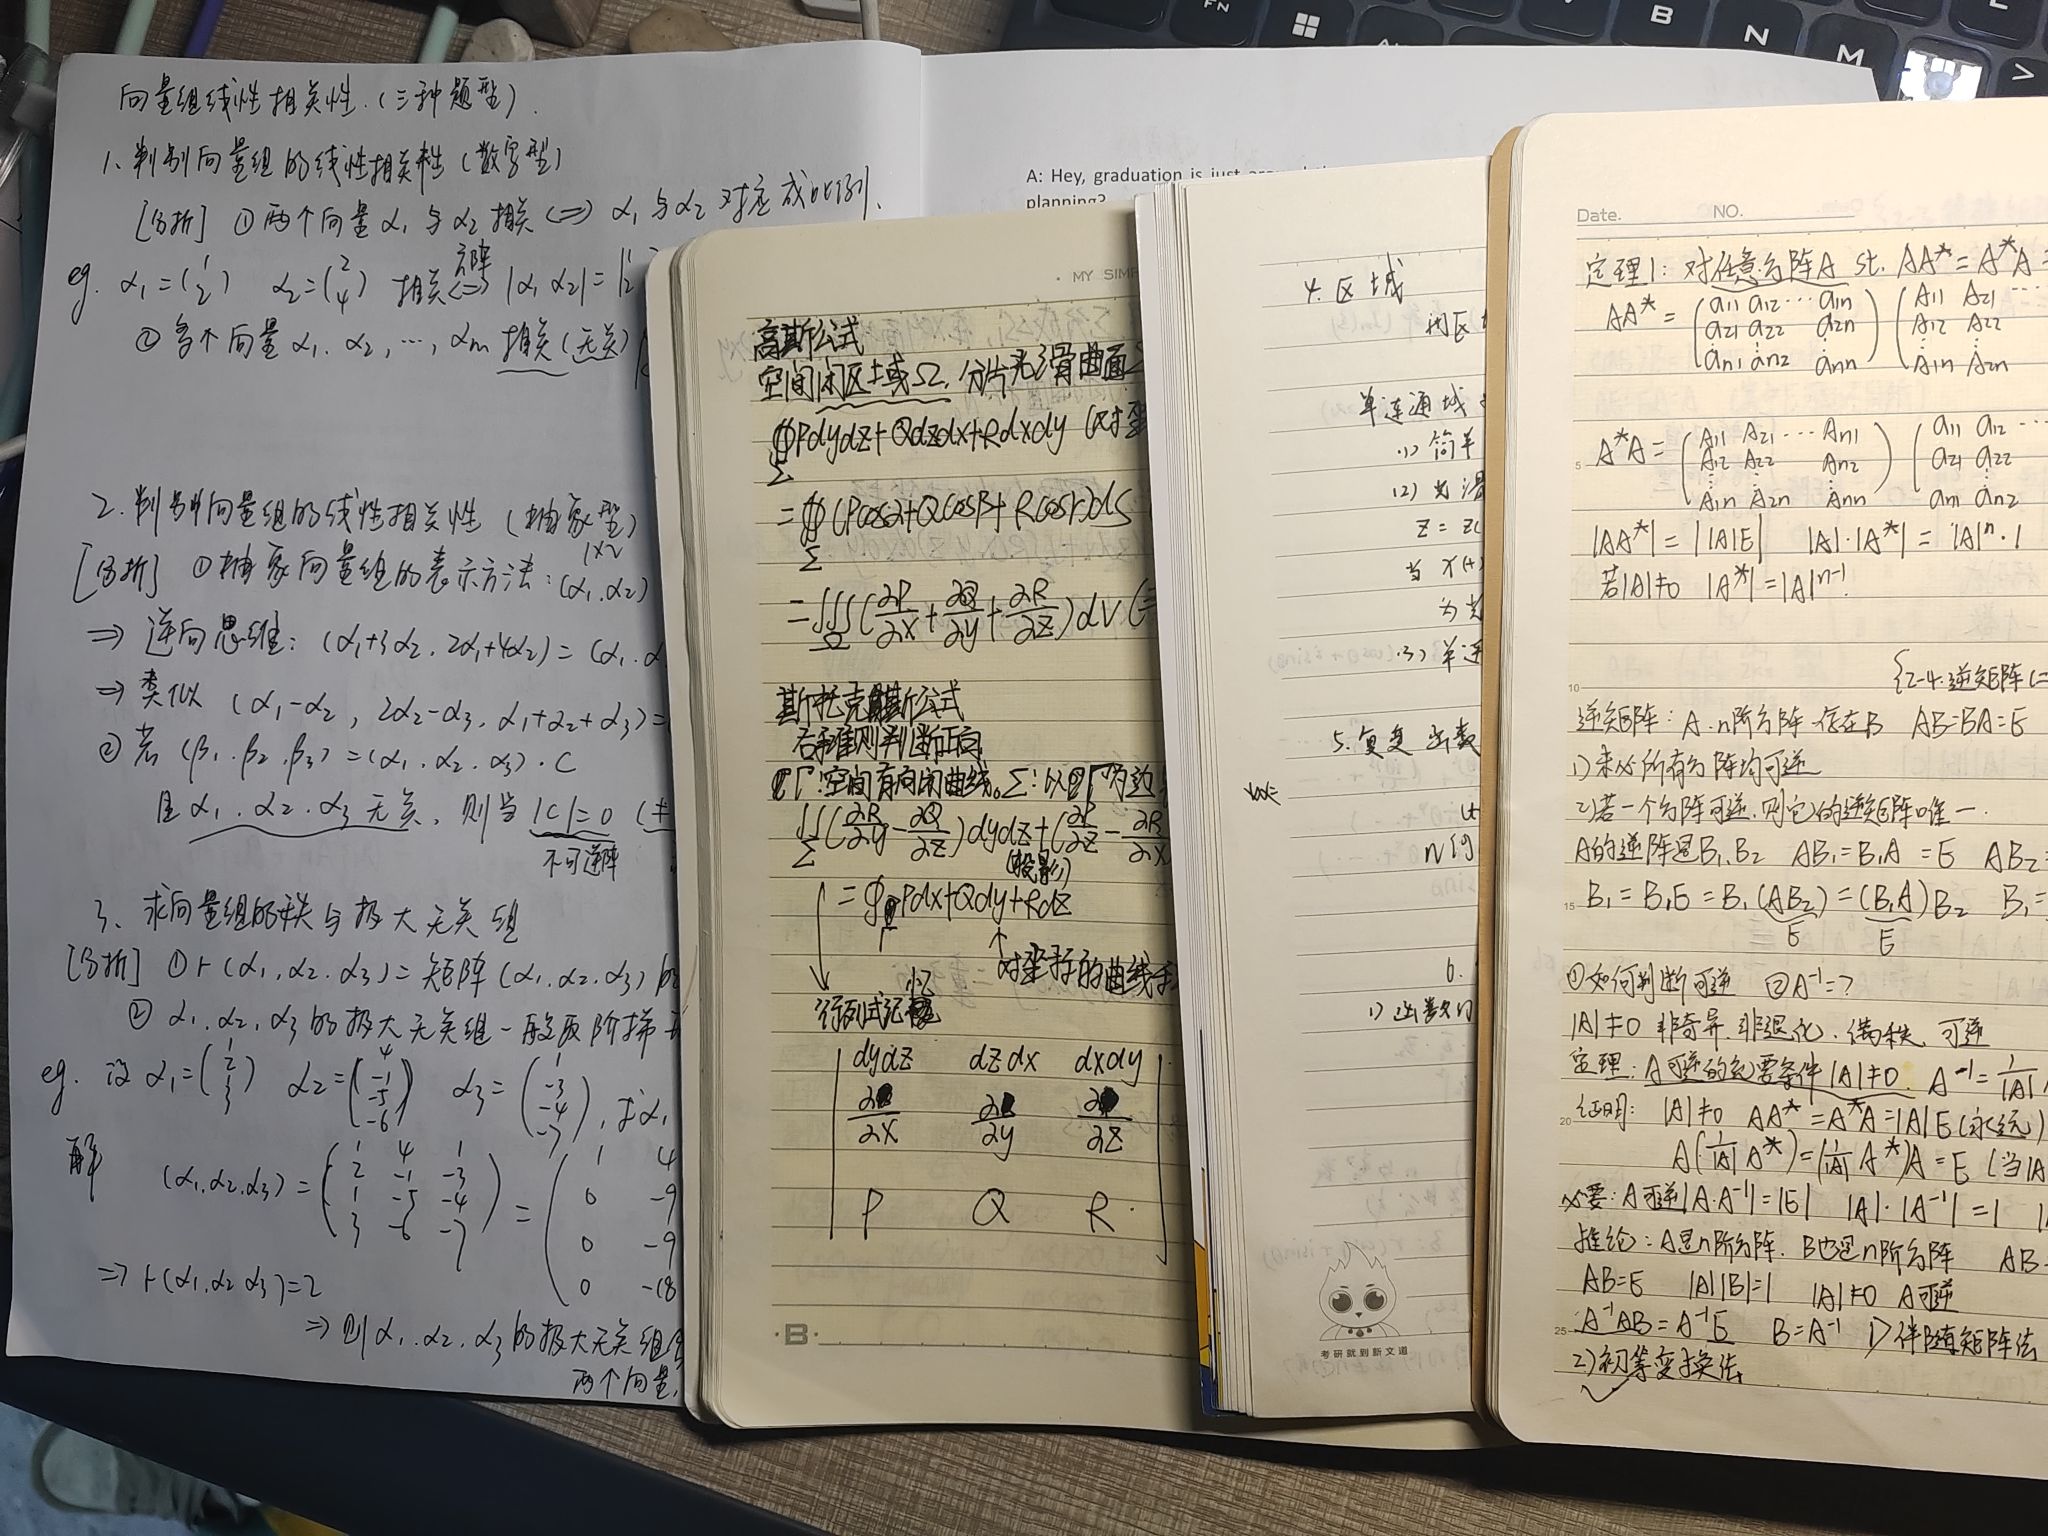 向量组线性相关性.(三种题型).
1、判别向量组的线性相关性(数字型)
[分析] ①两个向量α₁与α₂相关⟺α₁与α₂对应成比例.
eg. α₁=(1 2) α₂=(2 4) 相关 ⟺ |α₁ α₂|=
方阵
②多个向量α₁.α₂,…,αm相关(无关)
2.判别向量组的线性相关性(抽象型)
1×2
[分析] ①抽象向量组的表示方法:(α₁.α₂)
⇒ 逆向思维: (α₁+3α₂.2α₁+4α₂)=(α₁.α
⇒ 类似 (α₁-α₂, 2α₂-α₃, α₁+α₂+α₃)=
② 若 (β₁.β₂.β₃)=(α₁.α₂.α₃)·C
且α₁.α₂.α₃无关,则当|C|=0
不可逆阵
3、求向量组的秩与极大无关组
[分析] ①r(α₁.α₂.α₃)=矩阵(α₁.α₂.α₃)的
② α₁.α₂.α₃的极大无关组一般取阶梯
eg. 设α₁=(1 2 1 3) α₂=(4 -1 -5 -6) α₃=(1 -3 -4 -7),求α₁
解 (α₁.α₂.α₃)=
1 4 1
2 -1 -3
1 -5 -4
3 -6 -7
=
1 4
0 -9
0 -9
0 -18
⇒ r(α₁.α₂ α₃)=2
⇒ 则α₁.α₂.α₃的极大无关组
两个向量.
A: Hey, graduation is just
planning?
MY SIM
高斯公式
空间闭区域Ω.分片光滑曲面
∯Pdydz+Qdzdx+Rdxdy (对坐
Σ
=∯(Pcosα+Qcosβ+Rcosγ)dS
Σ
=∭(∂P/∂x+∂Q/∂y+∂R/∂z)dV(三
Ω
斯托克斯公式
右手准则判断正向
Γ:空间有向闭曲线。Σ:以Γ为边
∬(∂R/∂y-∂Q/∂z)dydz+(∂P/∂z-∂R/∂x
Σ
(投影)
=∮Pdx+Qdy+Rdz
Γ
对坐标的曲线
行列式记忆
dydz dzdx dxdy
∂/∂x ∂/∂y ∂/∂z
P Q R
·B·
4.区域
闭区
单连通域
(1) 简单
(2) 光滑
z=z(
当x(t)
为
(3) 单连
5.复变函数
6.
1) 函数
考研就到新文道
Date. NO.
定理1:对任意方阵A st. AA*=A*A=
AA*=
a₁₁ a₁₂ … a₁ₙ A₁₁ A₂₁ …
a₂₁ a₂₂ a₂ₙ A₁₂ A₂₂
aₙ₁ aₙ₂ aₙₙ A₁ₙ A₂ₙ
A*A=
A₁₁ A₂₁ … Aₙ₁ a₁₁ a₁₂ …
A₁₂ A₂₂ Aₙ₂ a₂₁ a₂₂
A₁ₙ A₂ₙ Aₙₙ aₙ₁ aₙ₂
5
|AA*|=||A|E| |A|·|A*|=|A|ⁿ·1
若|A|≠0 |A*|=|A|ⁿ⁻¹.
§2-4.逆矩阵(二
10
逆矩阵:A.n阶方阵.存在B AB=BA=E
1)未必所有方阵均可逆
2)若一个方阵可逆.则它的逆矩阵唯一.
A的逆阵是B₁.B₂ AB₁=B₁A=E AB₂=
15
B₁=B₁E=B₁(AB₂)=(B₁A)B₂ B₁=
E E
①如何判断可逆 ②A⁻¹=?
|A|≠0 非奇异.非退化.满秩.可逆
定理:A可逆的充要条件|A|≠0. A⁻¹=1/|A|
20
证明: |A|≠0 AA*=A*A=|A|E(永远)
A(1/|A| A*)=(1/|A| A*)A=E (当|A
必要:A可逆|A·A⁻¹|=|E| |A|·|A⁻¹|=1
推论:A是n阶方阵.B也是n阶方阵 AB
AB=E |A||B|=1 |A|≠0 A可逆
25
A⁻¹AB=A⁻¹E B=A⁻¹ 1)伴随矩阵法
2)初等变换法